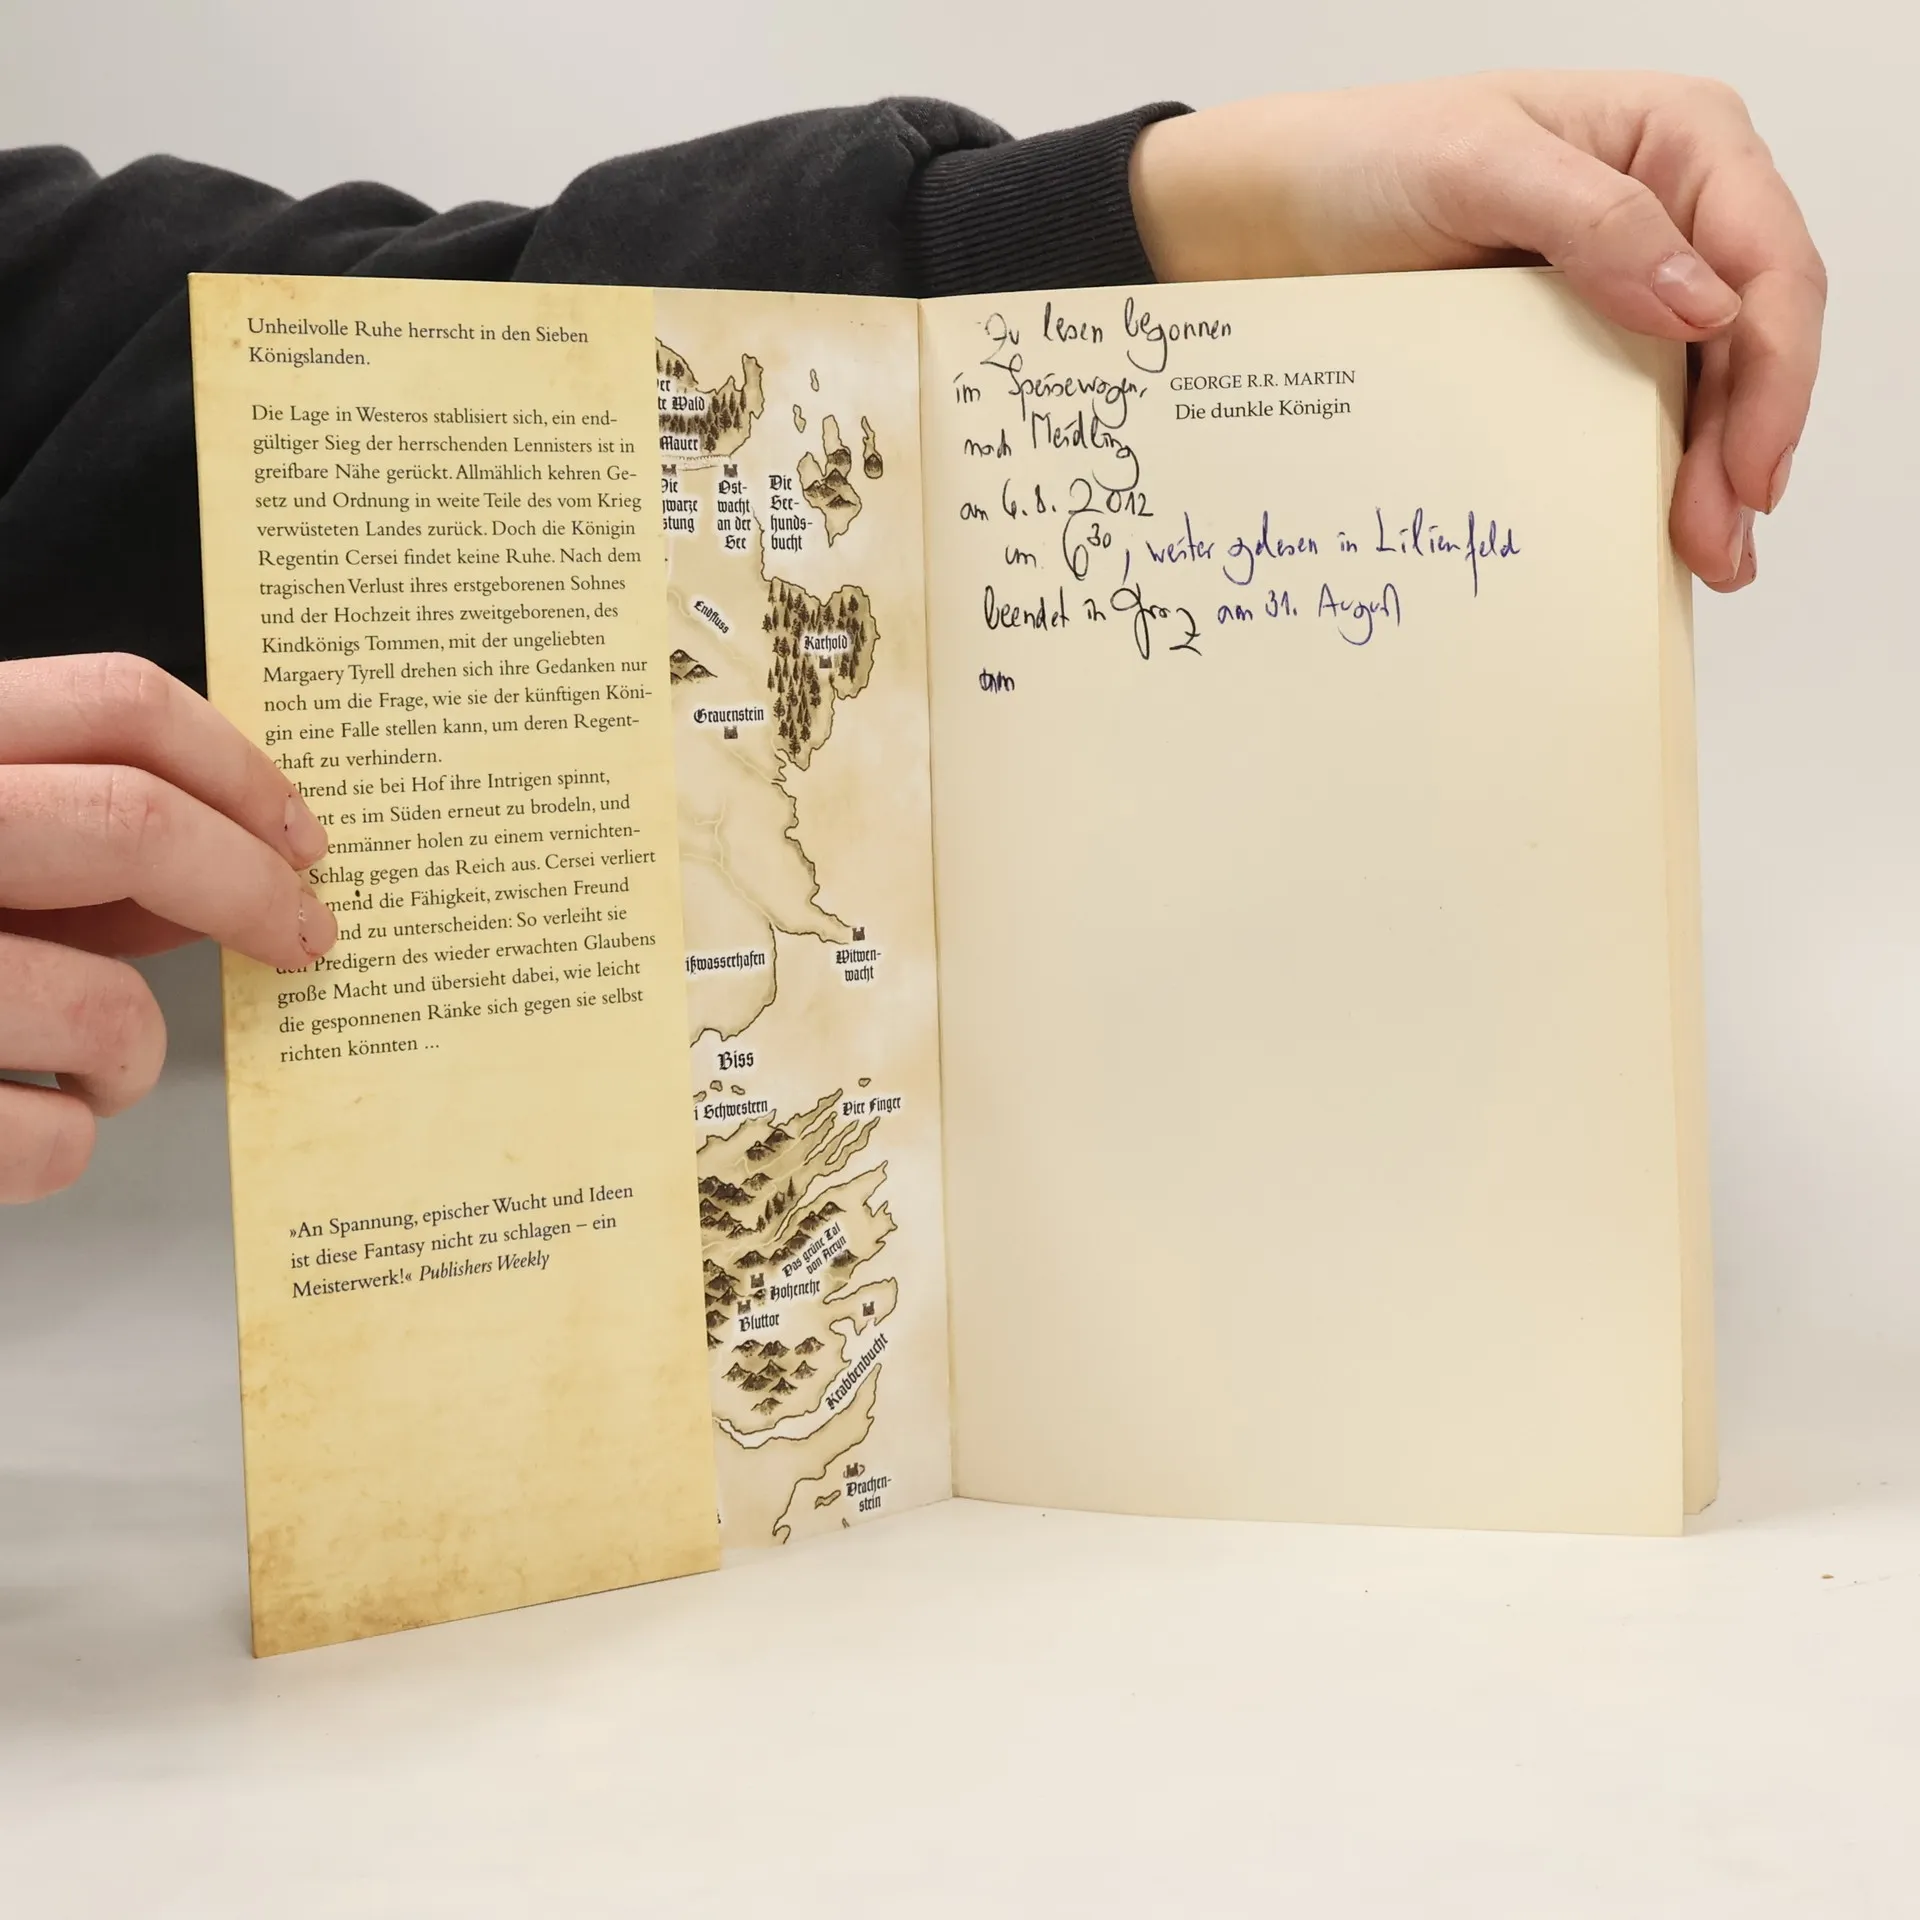 Unheilvolle Ruhe herrscht in den Sieben
Königslanden.
Die Lage in Westeros stablisiert sich, ein end-
gültiger Sieg der herrschenden Lennisters ist in
greifbare Nähe gerückt. Allmählich kehren Ge-
setz und Ordnung in weite Teile des vom Krieg
verwüsteten Landes zurück. Doch die Königin
Regentin Cersei findet keine Ruhe. Nach dem
tragischen Verlust ihres erstgeborenen Sohnes
und der Hochzeit ihres zweitgeborenen, des
Kindkönigs Tommen, mit der ungeliebten
Margaery Tyrell drehen sich ihre Gedanken nur
noch um die Frage, wie sie der künftigen Köni-
gin eine Falle stellen kann, um deren Regent-
chaft zu verhindern.
hrend sie bei Hof ihre Intrigen spinnt,
nt es im Süden erneut zu brodeln, und
enmänner holen zu einem vernichten-
Schlag gegen das Reich aus. Cersei verliert
mend die Fähigkeit, zwischen Freund
nd zu unterscheiden: So verleiht sie
den Predigern des wieder erwachten Glaubens
große Macht und übersieht dabei, wie leicht
die gesponnenen Ränke sich gegen sie selbst
richten könnten ...
»An Spannung, epischer Wucht und Ideen
ist diese Fantasy nicht zu schlagen – ein
Meisterwerk!« Publishers Weekly
er
te Wald
Mauer
Die
warze
stung
Ost-
wacht
an der
See
Die
See-
hunds-
bucht
Endfluss
Karhold
Grauenstein
ißwasserhafen
Witwen-
wacht
Biss
i Schwestern
Vier Finger
Das grüne Tal
von Arryn
Hohenehr
Bluttor
Krabbenbucht
Drachen-
stein
Zu lesen begonnen
im Speisewagen,
nach Meidling
am 6.8.2012
um 6³⁰, weiter gelesen in Lilienfeld
beendet in Graz am 31. August
am
GEORGE R.R. MARTIN
Die dunkle Königin